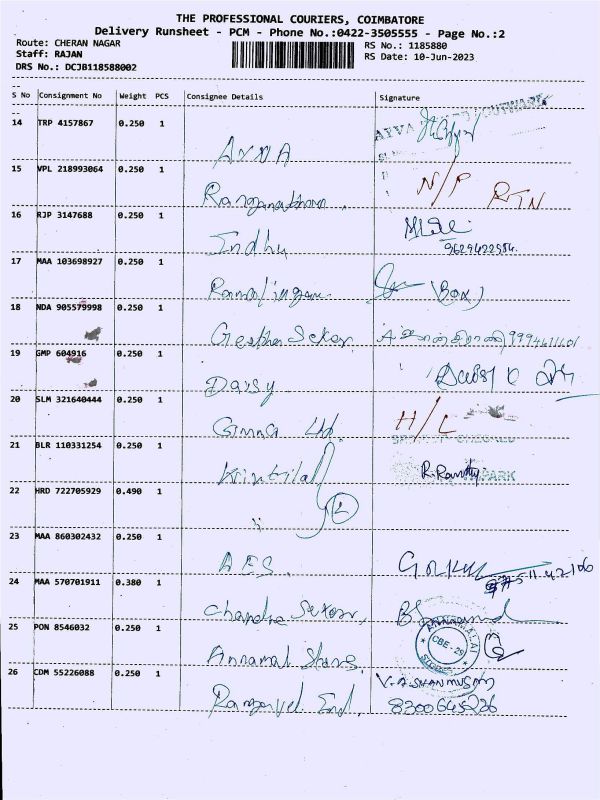 THE PROFESSIONAL COURIERS, COIMBATORE
Delivery Runsheet - PCM - Phone No.:0422-3505555 - Page No.:2
Route: CHERAN NAGAR RS No.: 1185880
Staff: RAJAN RS Date: 10-Jun-2023
DRS No.: DCJB118588002
S No Consignment No Weight PCS Consignee Details Signature
14 TRP 4157867 0.250 1
AYVA
15 VPL 218993064 0.250 1 N/P RTN
Ranganathan.
16 RJP 3147688 0.250 1
Indhu
17 MAA 103698927 0.250 1
Ramalingam (Box)
18 NDA 905579998 0.250 1
Sekar.
19 GMP 604916 0.250 1
Daisy
20 SLM 321640444 0.250 1 H/L
Ltd.
21 BLR 110331254 0.250 1 PARK
22 HRD 722705929 0.490 1
23 MAA 860302432 0.250 1
AES.
24 MAA 570701911 0.380 1
Chandra Sekar.
25 PON 8546032 0.250 1 ANNAMALAI
CBE - 29
STORES
Annamal Stores.
26 CDM 55226088 0.250 1 V.A SHANMUGAM
Rangavel End. 8300645236